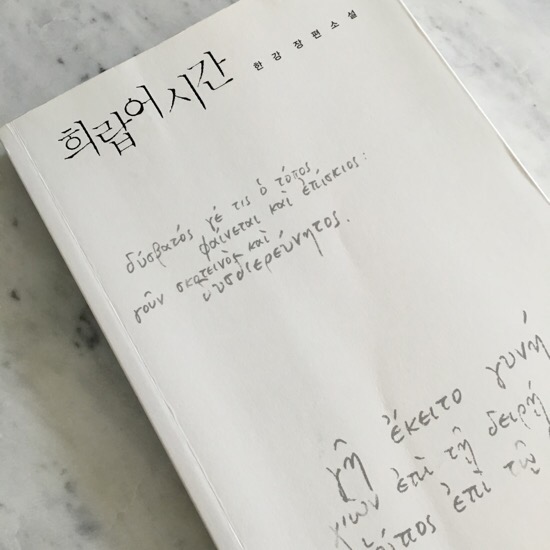 희랍어 시간
한강 장편소설
δύσβατός γέ τις ὁ τόπος
φαίνεται καὶ ἐπίσκιος·
γοῦν σκοτεινὸς καὶ
δυσδιερεύνητος.
γῆ ἔκειτο γυνή
χιὼν ἐπὶ τῇ δειρῇ
ἐπὶ τῷ